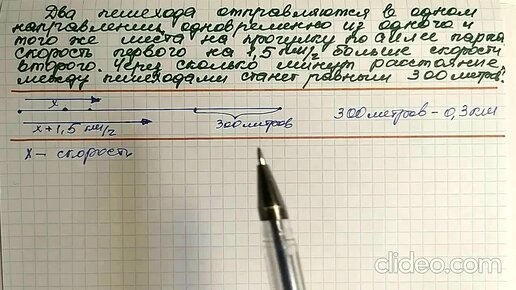 Два пешехода отправляются в одном
направлении одновременно из одного и
того же места на прогулку по аллее парка
скорость первого на 1,5 км/г больше скорости
второго. Через сколько минут расстояние
между пешеходами станет равным 300 метров?
x
x+1,5 км/г
300 метров
300 метров - 0,3 км
x - скорость
clideo.com